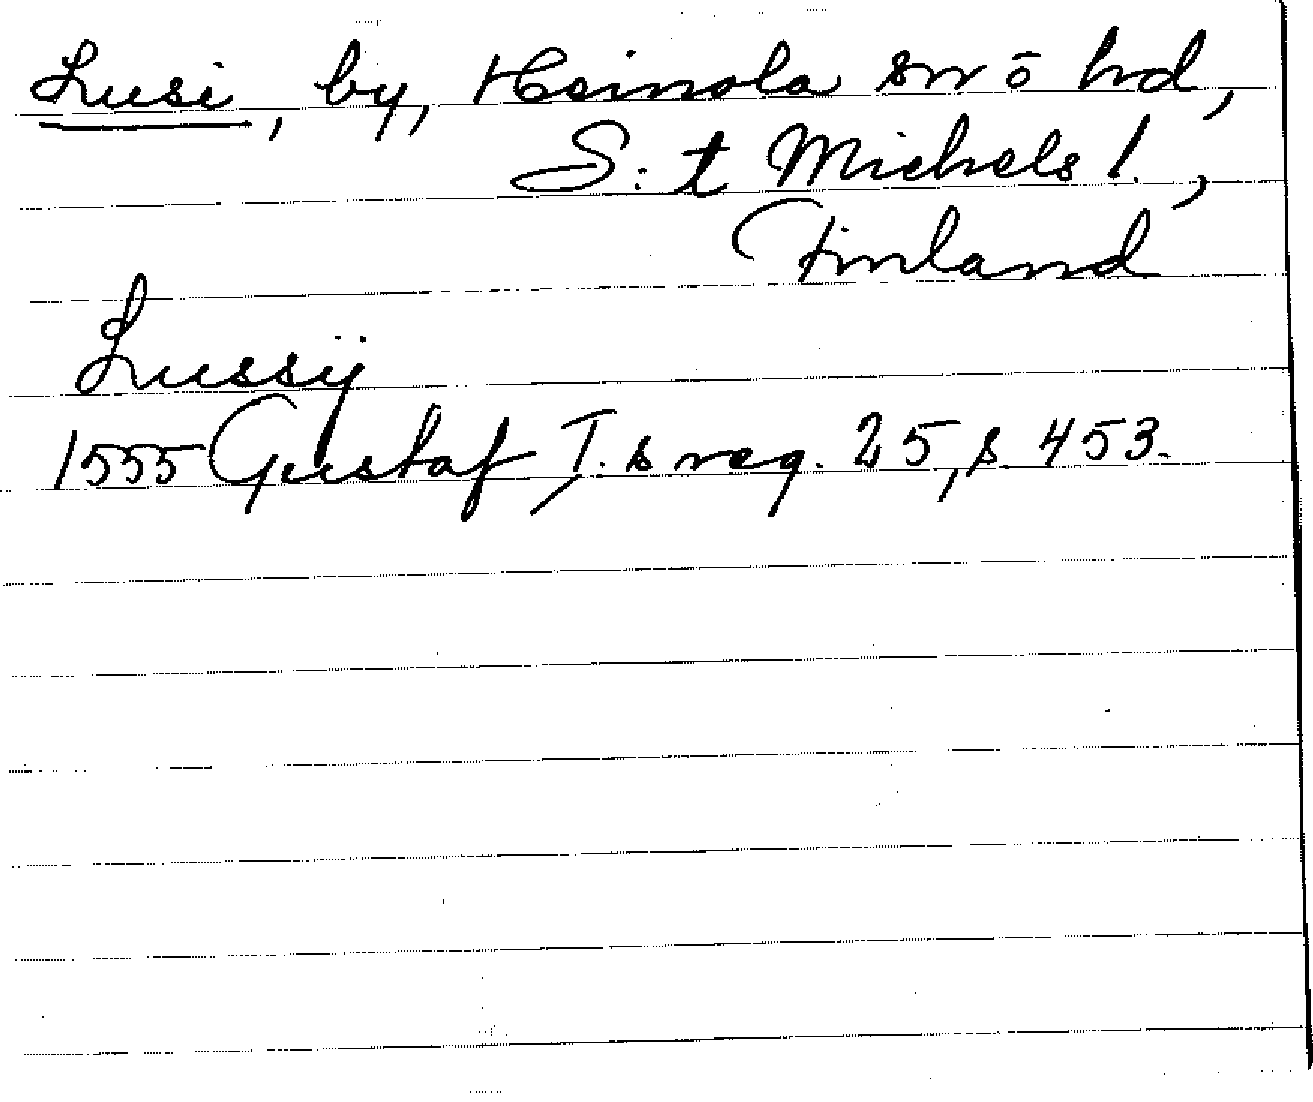 Lusi, by, Heinola sn o hd,
S:t Michels l.,
Finland
Lussij
1555 Gustaf I.s reg. 25, s 453.